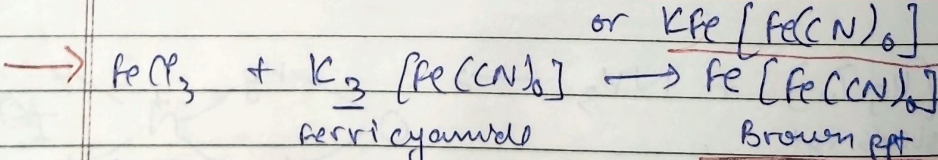 or KFe [Fe(CN)₆]
→ FeCl₃ + K₃ [Fe(CN)₆] → Fe [Fe(CN)₆]
Ferricyanide Brown ppt